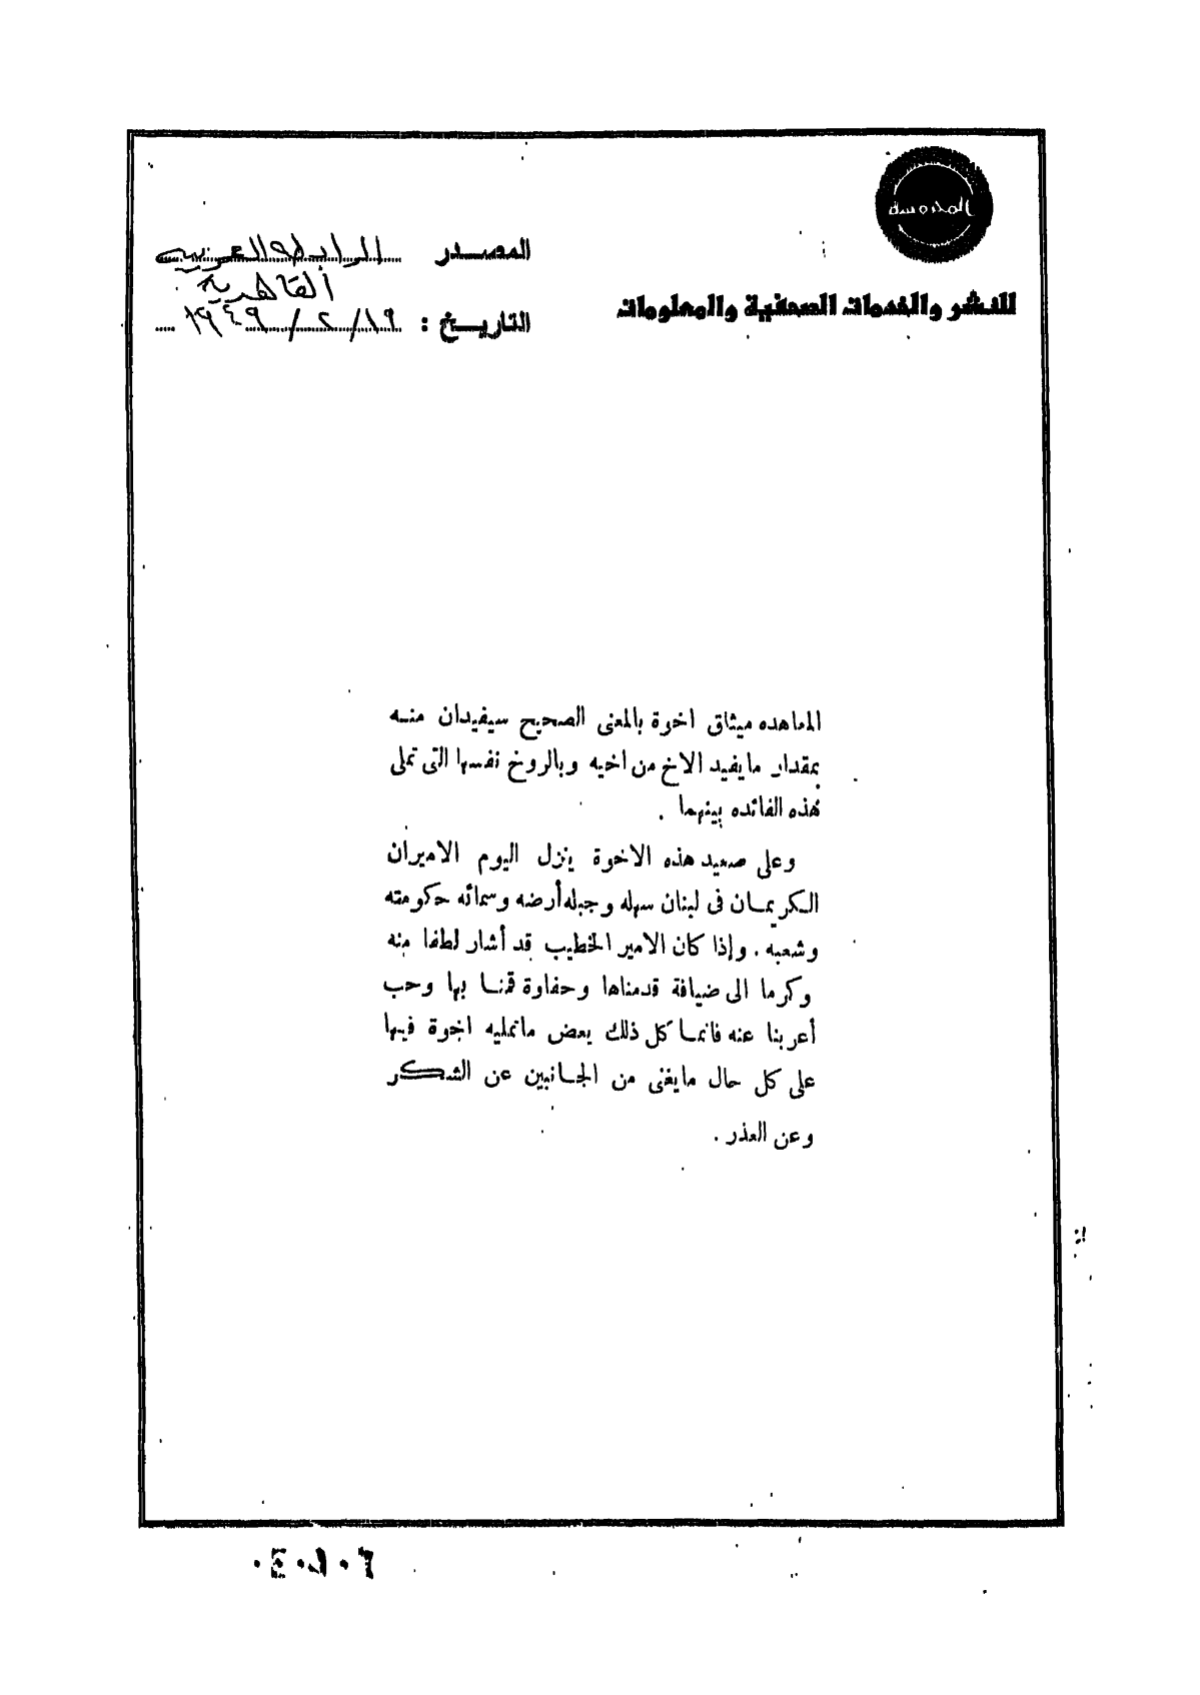 المحروسة
للنشر والخدمات الصحفية والمعلومات
المصدر الرابطة العربية
القاهرية
التاريخ : ١٩/٢/١٩٤٩
المعاهده ميثاق اخوة بالمعنى الصحيح سيفيدان منه
بمقدار مايفيد الاخ من اخيه وبالروح نفسها التى تملى
هذه الفائده بينهما .
وعلى صعيد هذه الاخوة ينزل اليوم الاميران
الكريمان فى لبنان سهله وجبله أرضه وسمائه حكومته
وشعبه . وإذا كان الامير الخطيب قد أشار لطفا منه
وكرما الى ضيافة قدمناها وحفاوة قمنا بها وحب
أعربنا عنه فانما كل ذلك بعض ماتمليه اخوة فيها
على كل حال مايغنى من الجانبين عن الشكر
وعن العذر .